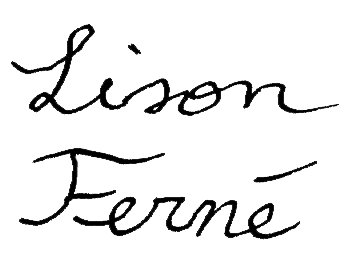 Lison
Ferné